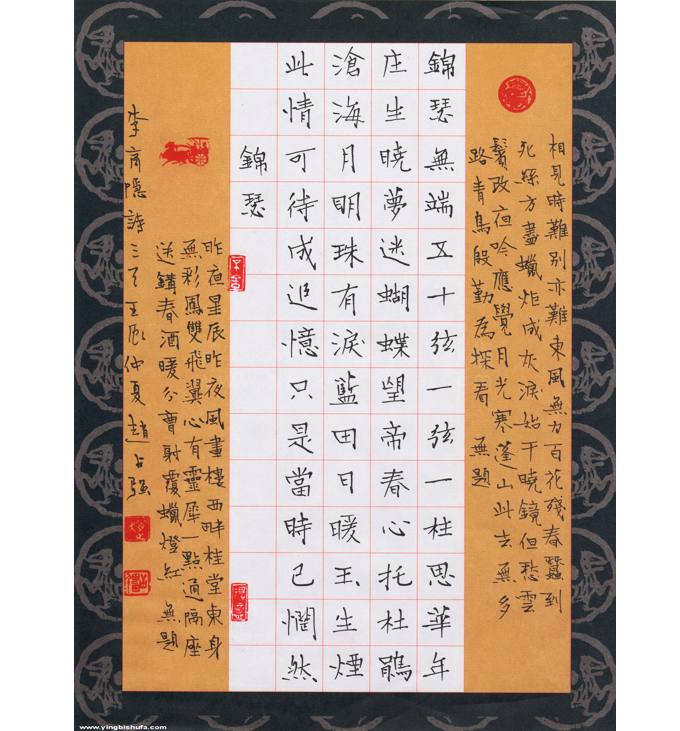 相見時難別亦難東風無力百花殘春蠶到
死絲方盡蠟炬成灰淚始干曉鏡但愁雲
鬢改夜吟應覺月光寒蓬山此去無多
路青鳥殷勤為探看 無題
錦瑟無端五十弦一弦一柱思華年
庄生曉夢迷蝴蝶望帝春心托杜鵑
滄海月明珠有淚藍田日暖玉生煙
此情可待成追憶只是當時已惘然
錦瑟
昨夜星辰昨夜風畫樓西畔桂堂東身
無彩鳳雙飛翼心有靈犀一點通隔座
送鉤春酒暖分曹射覆蠟燈紅 無題
李商隱詩三首壬辰仲夏趙占强
www.yingbishufa.com